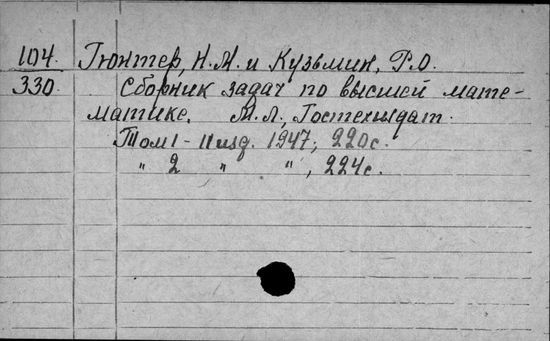 104. Гюнтер, Н.М. и Кузьмин, Р.О.
330. Сборник задач по высшей мате-
матике. М.Л., Гостехиздат.
Том 1 - 11 изд. 1947; 220с.
" 2 " ", 224с.